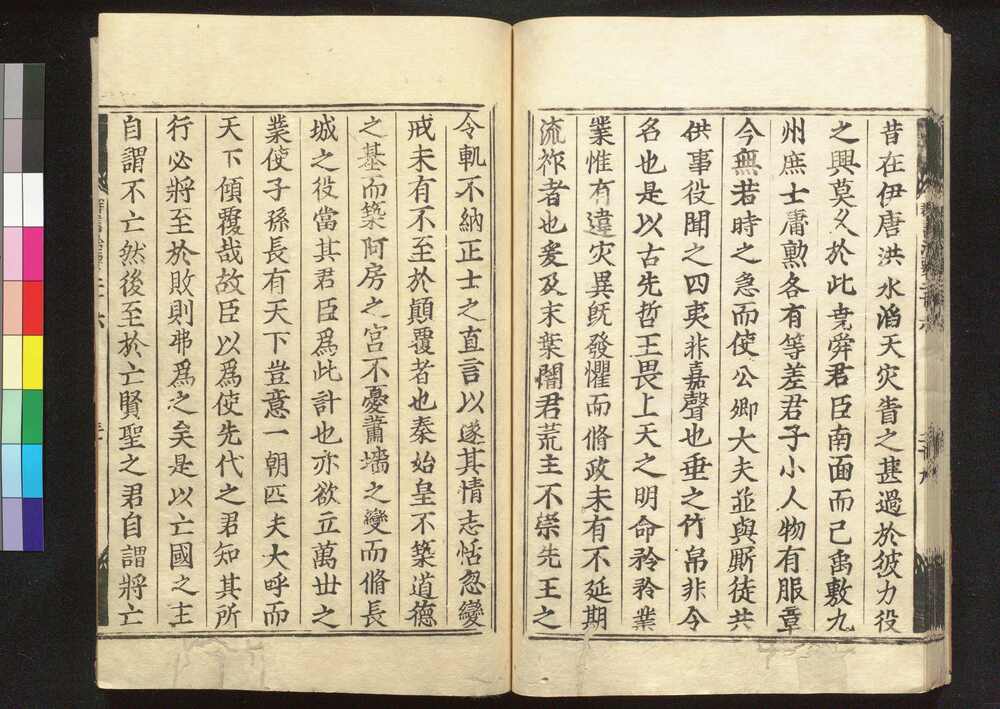 昔在伊唐洪水滔天灾眚之甚過於彼力役
之興莫久於此堯舜君臣南面而已禹敷九
州庶士庸勲各有等差君子小人物有服章
今無若時之急而使公卿大夫並與厮徒共
供事役聞之四夷非嘉聲也垂之竹帛非令
名也是以古先哲王畏上天之明命矜矜業
業惟有違灾異旣發懼而脩政未有不延期
流祚者也爰及末葉闇君荒主不崇先王之
令軌不納正士之直言以遂其情志恬忽變
戒未有不至於顛覆者也秦始皇不築道德
之基而築阿房之宮不憂蕭墻之變而脩長
城之役當其君臣爲此計也亦欲立萬世之
業使子孫長有天下豈意一朝匹夫大呼而
天下傾覆哉故臣以爲使先代之君知其所
行必將至於敗則弗爲之矣是以亡國之主
自謂不亡然後至於亡賢聖之君自謂將亡